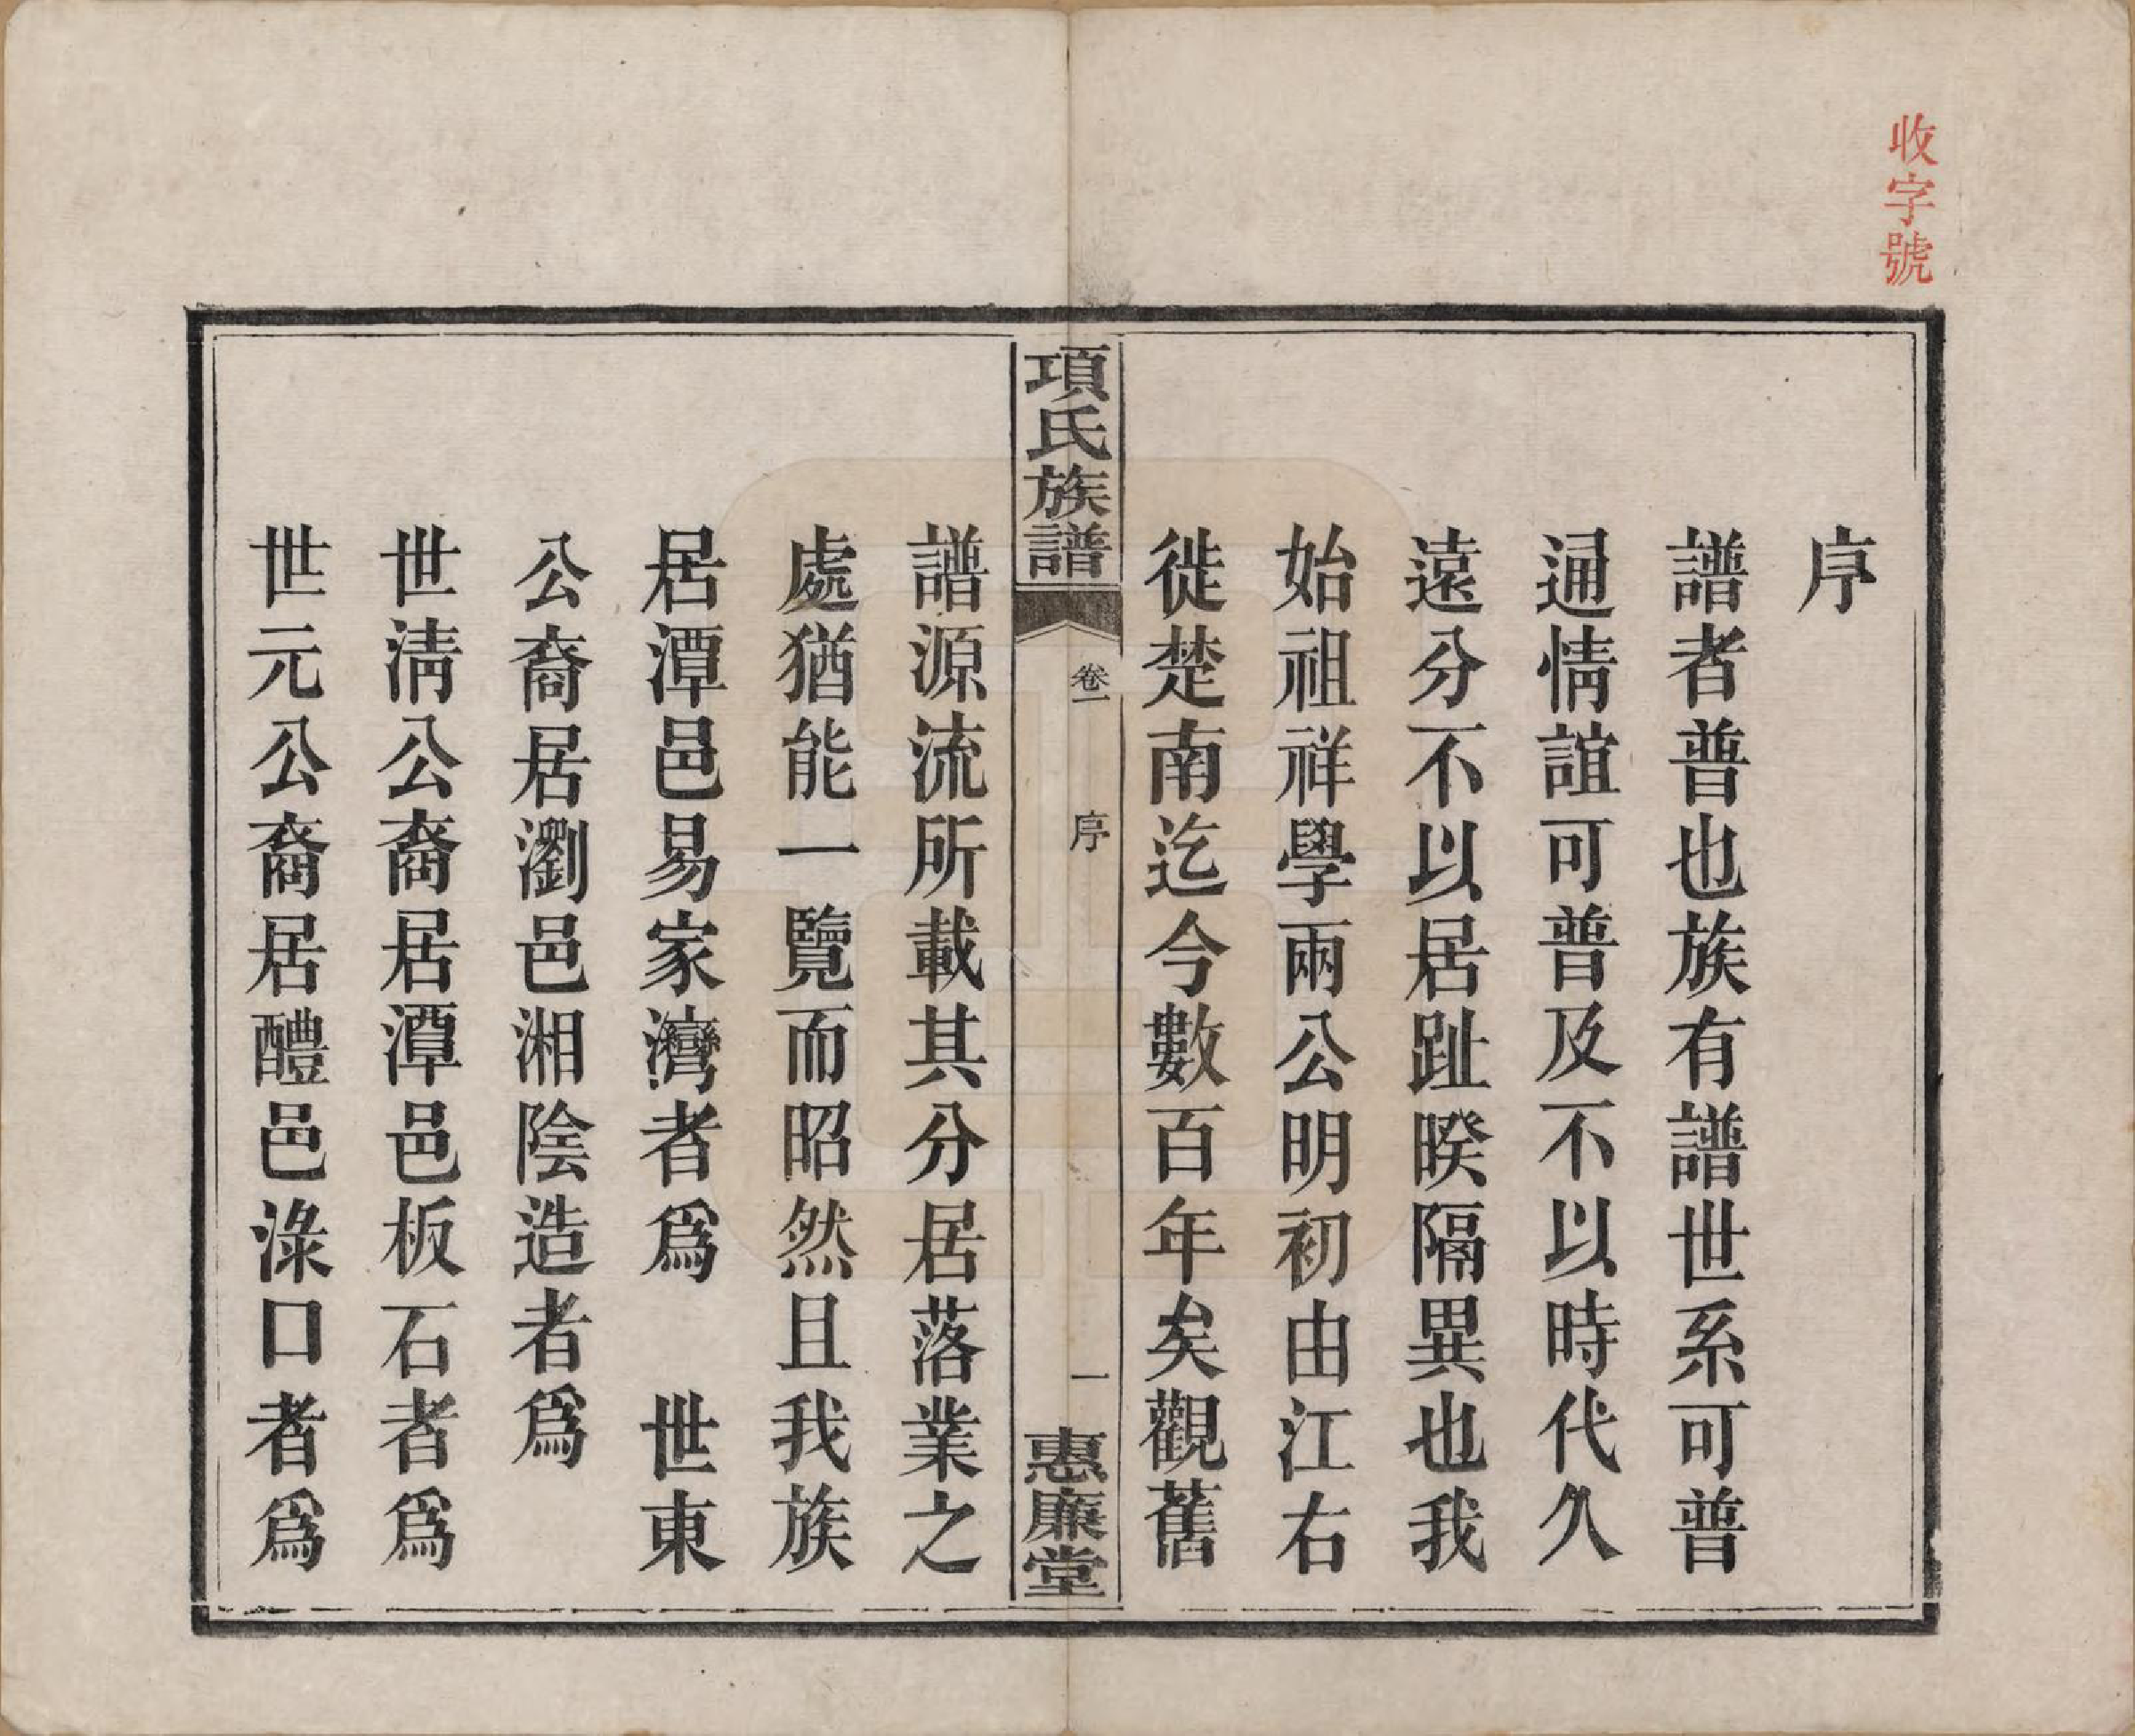 收字號
序
譜者普也族有譜世系可普
通情誼可普及不以時代久
遠分不以居趾暌隔異也我
始祖祥學兩公明初由江右
徙楚南迄今數百年矣觀舊
項氏族譜
卷一
序
一
惠廉堂
譜源流所載其分居落業之
處猶能一覽而昭然且我族
居潭邑易家灣者爲　世東
公裔居瀏邑湘陰造者爲
世清公裔居潭邑板石者爲
世元公裔居醴邑淥口者爲